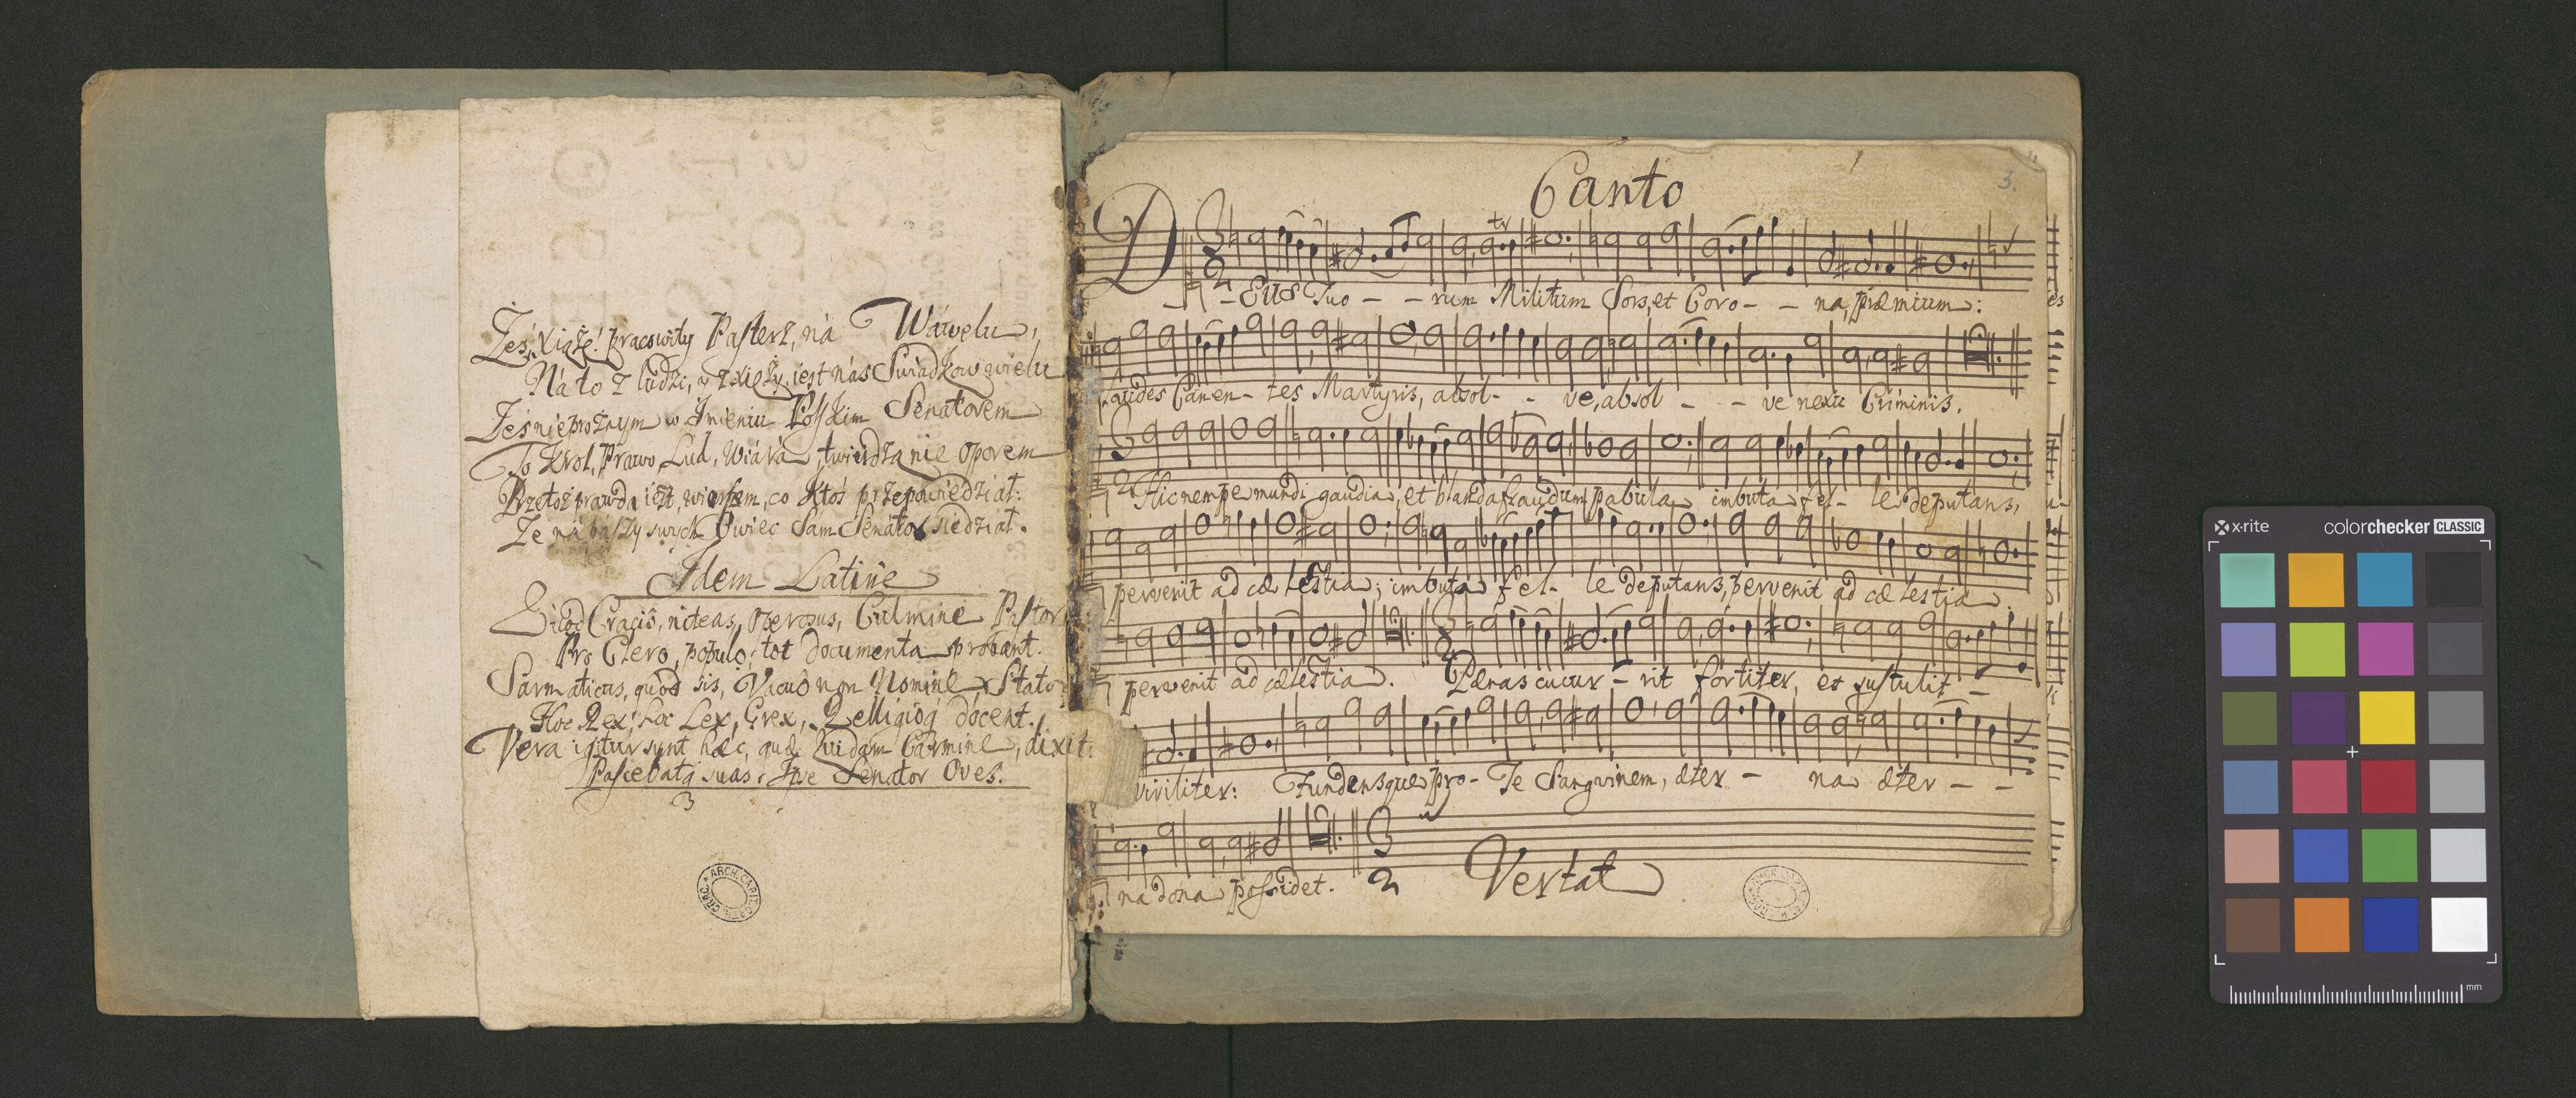 Żeś Xiążę! pracowity Pasterz, ná Wáwelu,
Ná to z ludzi, y Xięży, iest nás Swiádkow wielu
Żeś nieprożnym w Imieniu Polskim Senátorem
To Krol, Prawo, Lud, Wiárá, twierdzą nie oporem
Przetoż prawda iest, wierszem, co Ktoś przepowiedział:
Że ná paszy swych Owiec Sam Senator siedział.
Idem Latine
Quod Cracis, niteas, operosus, Culmine Pastor,
Pro Clero, populo, tot documenta probant.
Sarmaticus, quod sis, Vacuô non Nomine, Stator
Hoc Rex, hoc Lex, Grex, Relligioq; docent.
Vera igitur sunt hæc, quæ quidam Carmine, dixit:
Pascebatq; suas Ipse Senator Oves.
3
ARCH. CAPIT. CATH. CRAC.
Canto
1
3.
tr
DEus Tuo - - rum Militum Sors, et Coro - - na, præmium:
Laudes Canen - tes Martyris, absol - - ve, absol - - ve nexu Criminis.
Hic nempe mundi gaudia, et blanda fraudum pabula imbuta fel - le deputans,
pervenit ad cælestia; imbuta fel - le deputans, pervenit ad cælestia.
pervenit ad cælestia. Pænas cucur - rit fortiter, et sustulit -
viriliter: Fundensque pro Te Sanguinem, æter - na æter - -
na dona possidet. Vertat